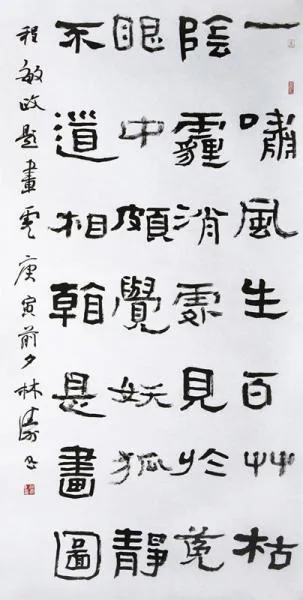 一嘯風生百艸枯
陰霾消處見於菟
眼中頗覺妖狐靜
不道相是畫圖
程敏政題畫虎庚寅前夕林